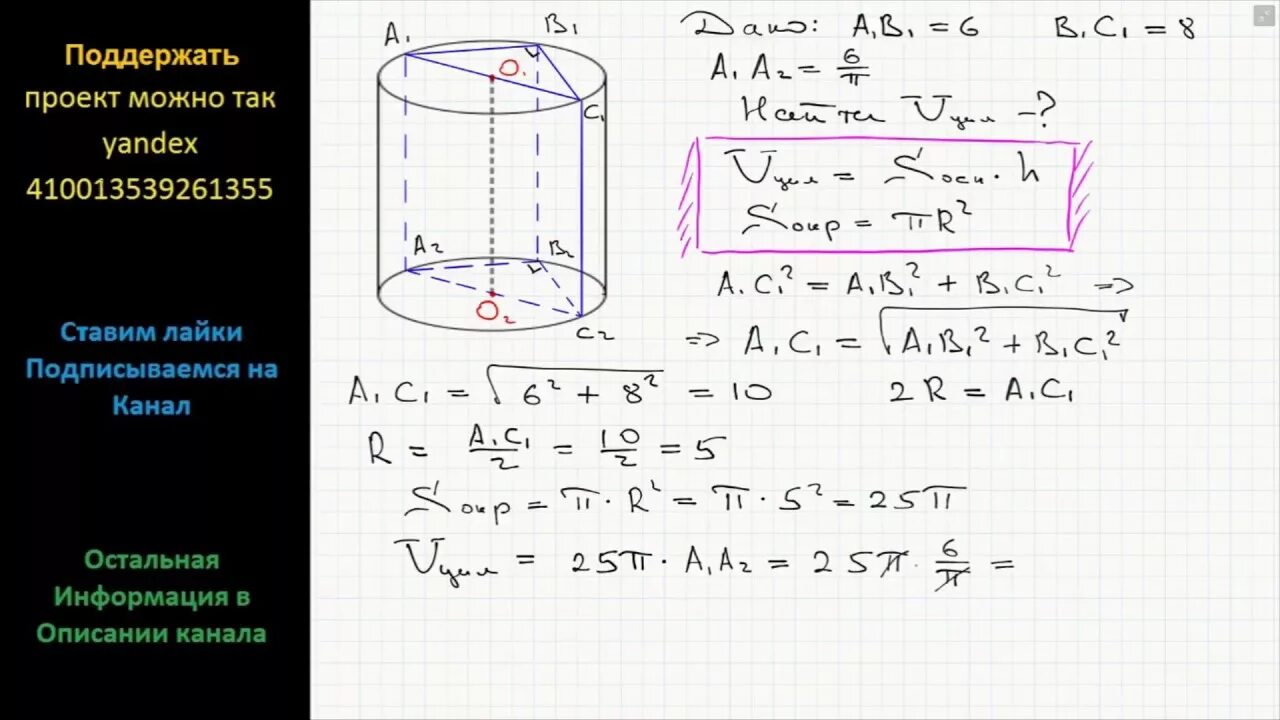 Поддержать
проект можно так
yandex
410013539261355
Ставим лайки
Подписываемся на
Канал
Остальная
Информация в
Описании канала
A₁
B₁
O₁
C₁
A₂
B₂
O₂
C₂
Дано: A₁B₁ = 6 B₁C₁ = 8
A₁A₂ = 6/π
Найти Vцил -?
Vцил = Sосн · h
Sокр = πR²
A₁C₁² = A₁B₁² + B₁C₁² =>
=> A₁C₁ = √(A₁B₁² + B₁C₁²)
A₁C₁ = √(6² + 8²) = 10 2R = A₁C₁
R = A₁C₁/2 = 10/2 = 5
Sокр = π · R² = π · 5² = 25π
Vцил = 25π · A₁A₂ = 25π · 6/π =